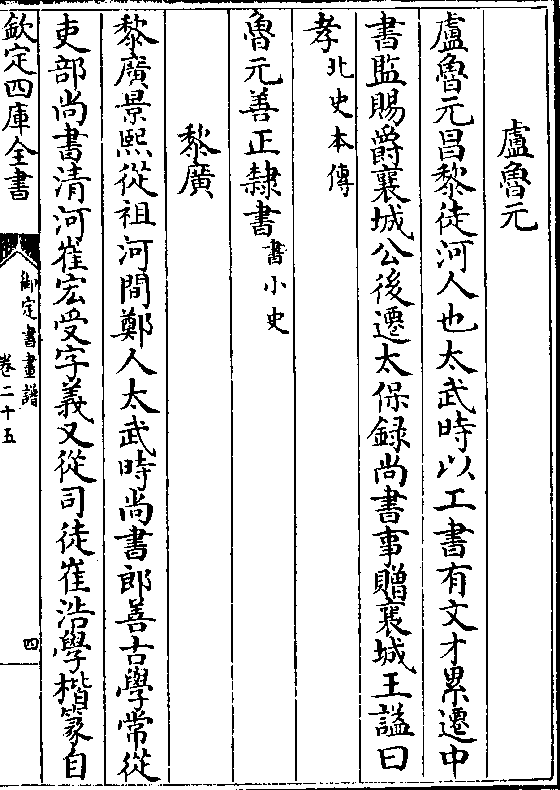 盧魯元
盧魯元昌黎徒河人也太武時以工書有文才累遷中
書監賜爵襄城公後遷太保録尚書事贈襄城王謚曰
孝北史本傳
魯元善正隸書書小史
黎廣
黎廣景熙從祖河間鄭人太武時尚書郎善古學常從
吏部尚書清河崔宏受字義又從司徒崔浩學楷篆自
欽定四庫全書
御定書畫譜
卷二十五
四